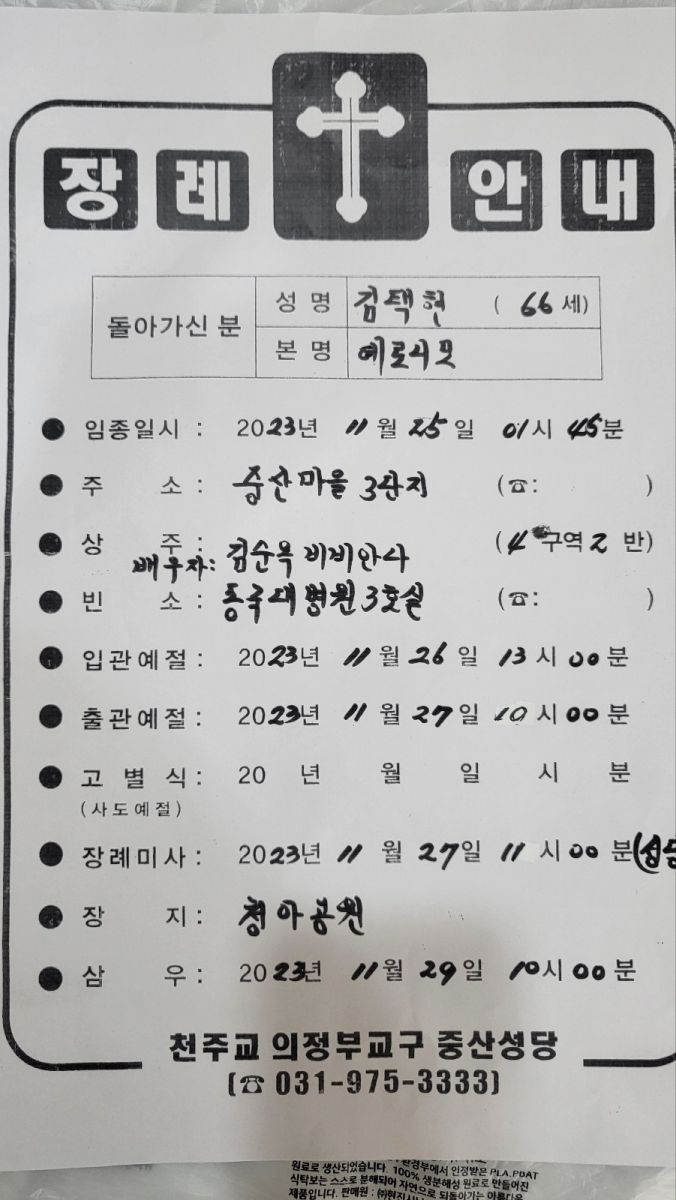 장례 안내
돌아가신 분
성 명 김택현 ( 66 세)
본 명 예로니모
● 임종일시 : 2023년 11월 25일 01시 45분
● 주 소 : 중산마을 3단지 (☎: )
● 상 주 : (4구역 2 반)
배우자: 김순옥 비비안나
● 빈 소 : 동국대병원 3호실 (☎: )
● 입관예절 : 2023년 11월 26일 13시 00분
● 출관예절 : 2023년 11월 27일 10시 00분
● 고 별 식 : 20 년 월 일 시 분
(사도예절)
● 장례미사 : 2023년 11월 27일 11시 00분
● 장 지 : 청아공원
● 삼 우 : 2023년 11월 29일 10시 00분
천주교 의정부교구 중산성당
(☎ 031-975-3333)
원료로 생산되었습니다. 100% 생분해성 원료로 만들어진
식탁보는 스스로 분해되어 자연으로 되돌아가는 아름다운
제품입니다. 판매원 :